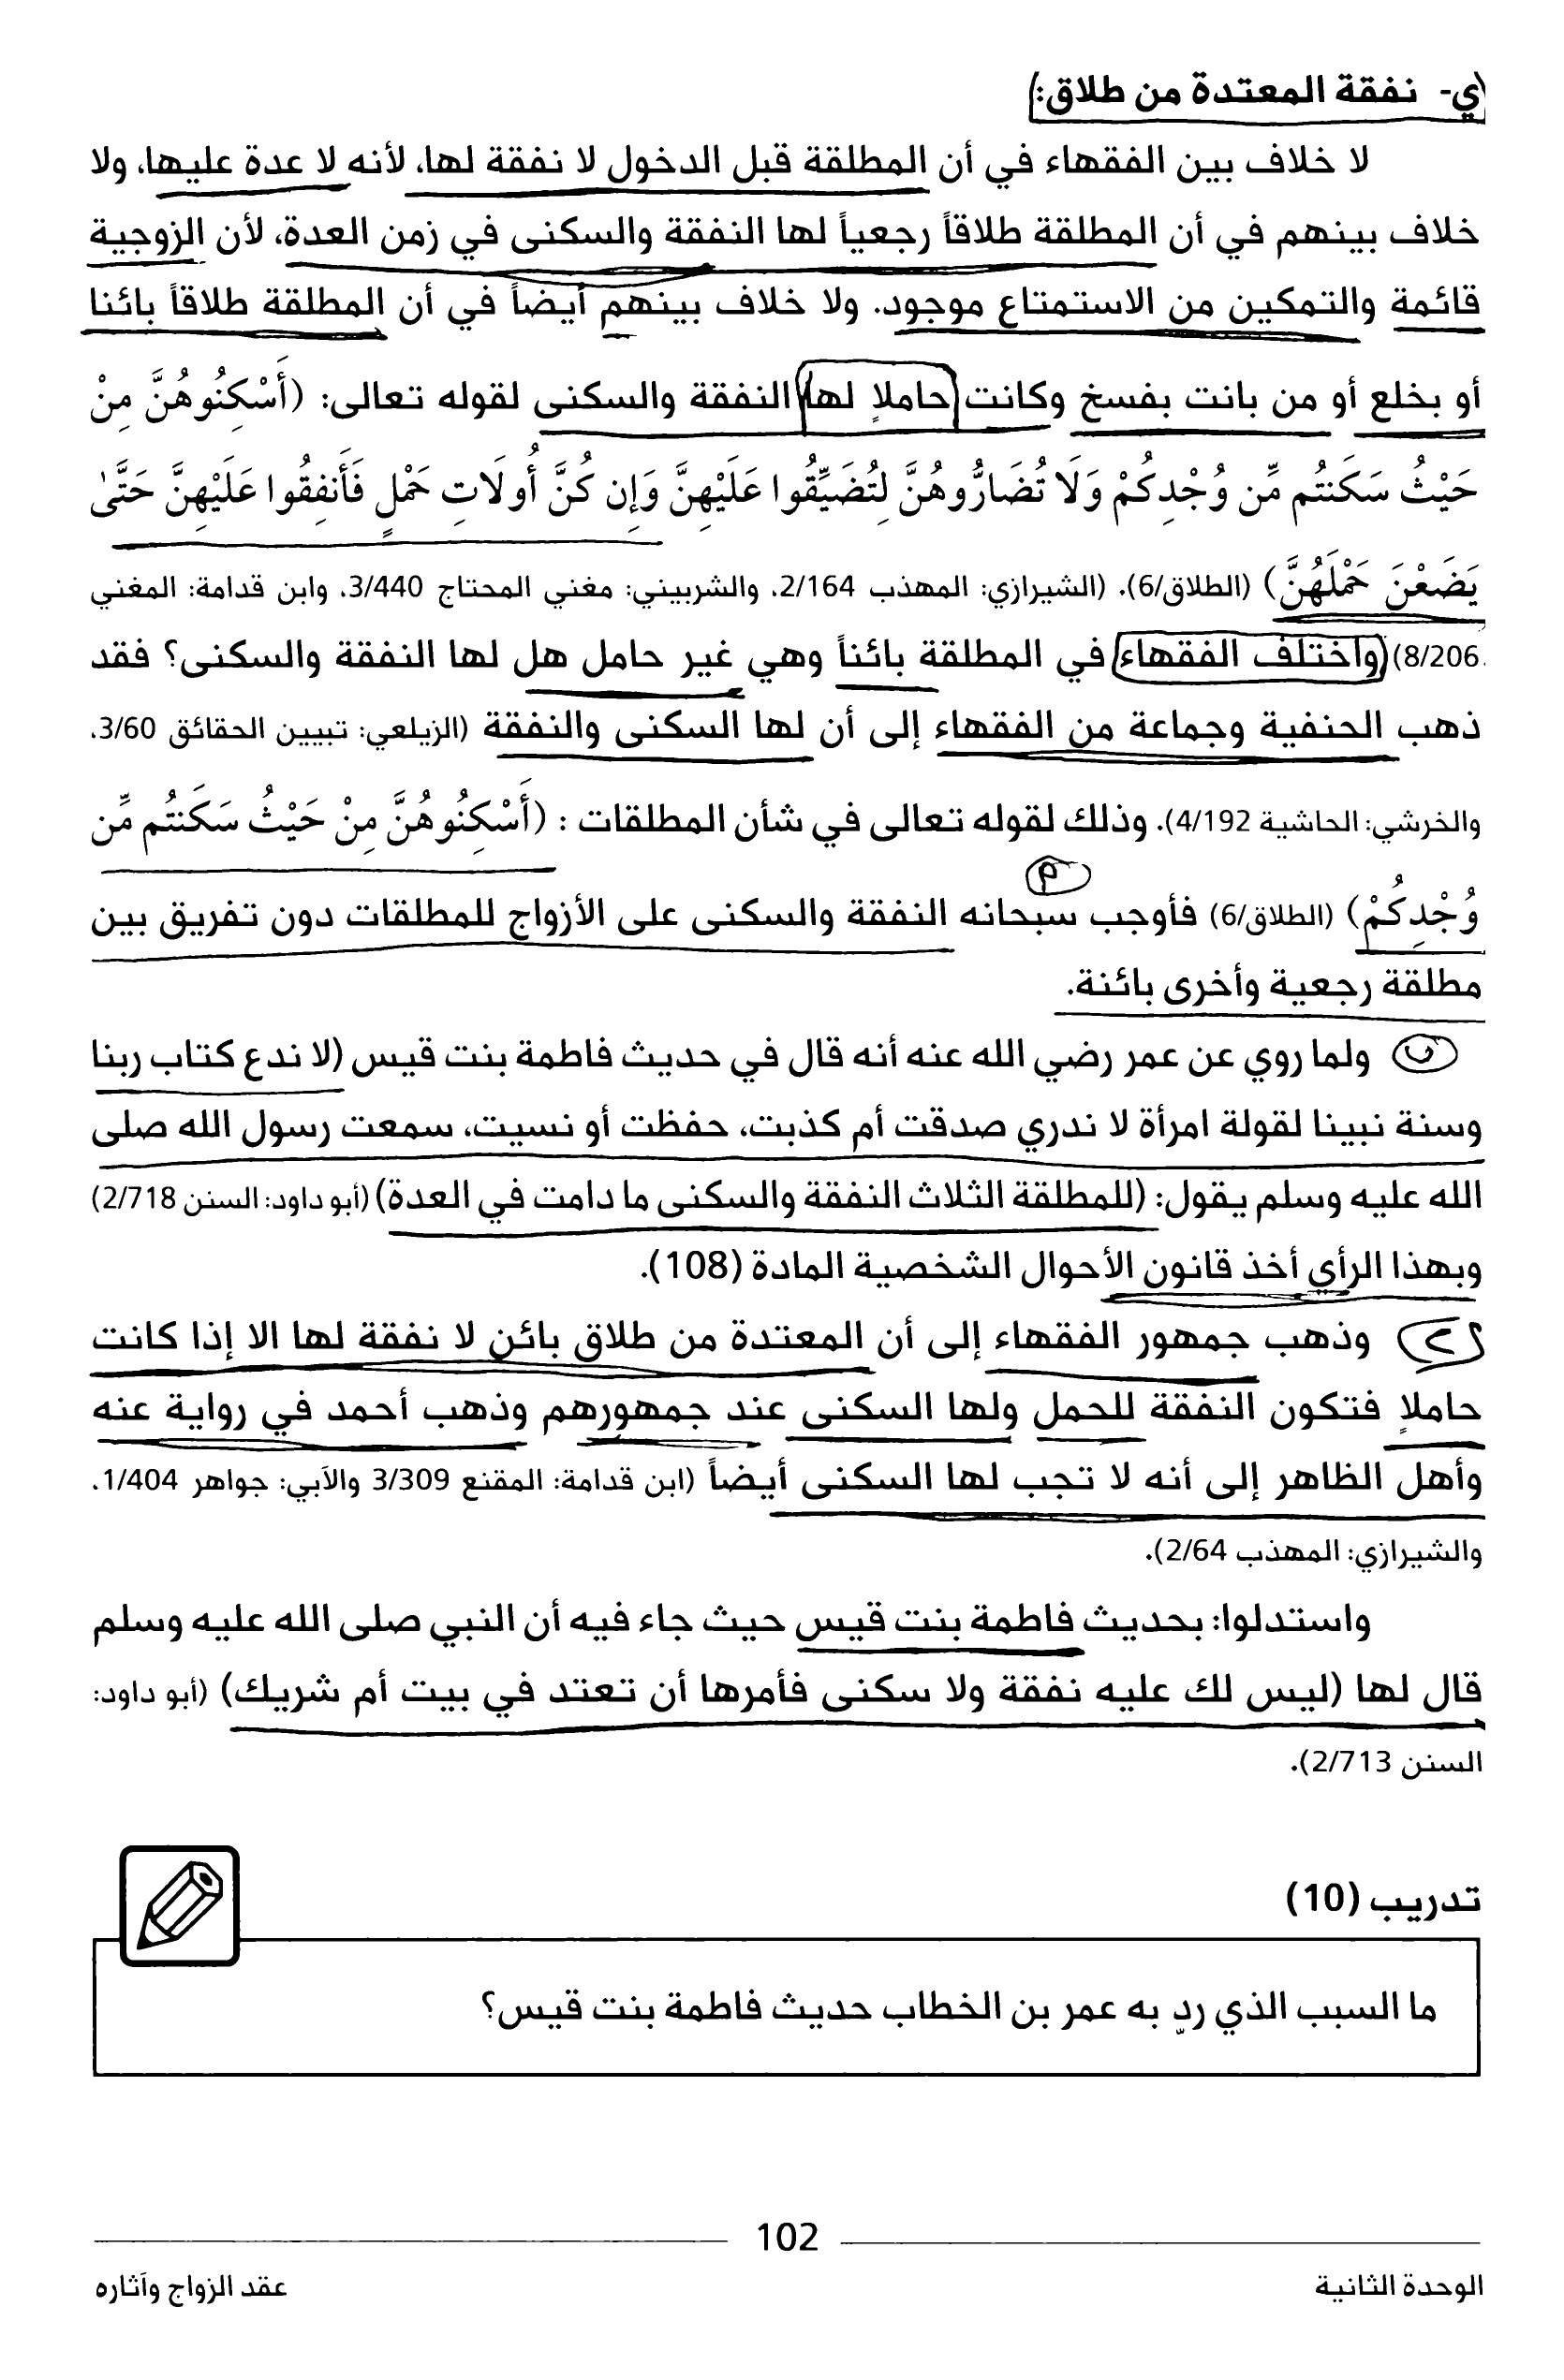 ي- نفقة المعتدة من طلاق:
لا خلاف بين الفقهاء في أن المطلقة قبل الدخول لا نفقة لها، لأنه لا عدة عليها، ولا
خلاف بينهم في أن المطلقة طلاقاً رجعياً لها النفقة والسكنى في زمن العدة، لأن الزوجية
قائمة والتمكين من الاستمتاع موجود. ولا خلاف بينهم أيضاً في أن المطلقة طلاقاً بائنا
أو بخلع أو من بانت بفسخ وكانت حاملاٍ لها النفقة والسكنى لقوله تعالى: (أَسْكِنُوهُنَّ مِنْ
حَيْثُ سَكَنتُم مِّن وُجْدِكُمْ وَلَا تُضَارُّوهُنَّ لِتُضَيِّقُوا عَلَيْهِنَّ وَإِن كُنَّ أُولَاتِ حَمْلٍ فَأَنفِقُوا عَلَيْهِنَّ حَتَّىٰ
يَضَعْنَ حَمْلَهُنَّ) (الطلاق/6). (الشيرازي: المهذب 2/164، والشربيني: مغني المحتاج 3/440، وابن قدامة: المغني
8/206) واختلف الفقهاء في المطلقة بائناً وهي غير حامل هل لها النفقة والسكنى؟ فقد
ذهب الحنفية وجماعة من الفقهاء إلى أن لها السكنى والنفقة (الزيلعي: تبيين الحقائق 3/60،
والخرشي: الحاشية 4/192). وذلك لقوله تعالى في شأن المطلقات : (أَسْكِنُوهُنَّ مِنْ حَيْثُ سَكَنتُم مِّن
م
وُجْدِكُمْ) (الطلاق/6) فأوجب سبحانه النفقة والسكنى على الأزواج للمطلقات دون تفريق بين
مطلقة رجعية وأخرى بائنة.
ب ولما روي عن عمر رضي الله عنه أنه قال في حديث فاطمة بنت قيس (لا ندع كتاب ربنا
وسنة نبينا لقولة امرأة لا ندري صدقت أم كذبت، حفظت أو نسيت، سمعت رسول الله صلى
الله عليه وسلم يقول: (للمطلقة الثلاث النفقة والسكنى ما دامت في العدة) (أبو داود: السنن 2/718)
وبهذا الرأي أخذ قانون الأحوال الشخصية المادة (108).
وذهب جمهور الفقهاء إلى أن المعتدة من طلاق بائن لا نفقة لها الا إذا كانت
حاملاٍ فتكون النفقة للحمل ولها السكنى عند جمهورهم وذهب أحمد في رواية عنه
وأهل الظاهر إلى أنه لا تجب لها السكنى أيضاً (ابن قدامة: المقنع 3/309 والآبي: جواهر 1/404،
والشيرازي: المهذب 2/64).
واستدلوا: بحديث فاطمة بنت قيس حيث جاء فيه أن النبي صلى الله عليه وسلم
قال لها (ليس لك عليه نفقة ولا سكنى فأمرها أن تعتد في بيت أم شريك) (أبو داود:
السنن 2/713).
تدريب (10)
ما السبب الذي ردٍ به عمر بن الخطاب حديث فاطمة بنت قيس؟
102
الوحدة الثانية
عقد الزواج وآثاره